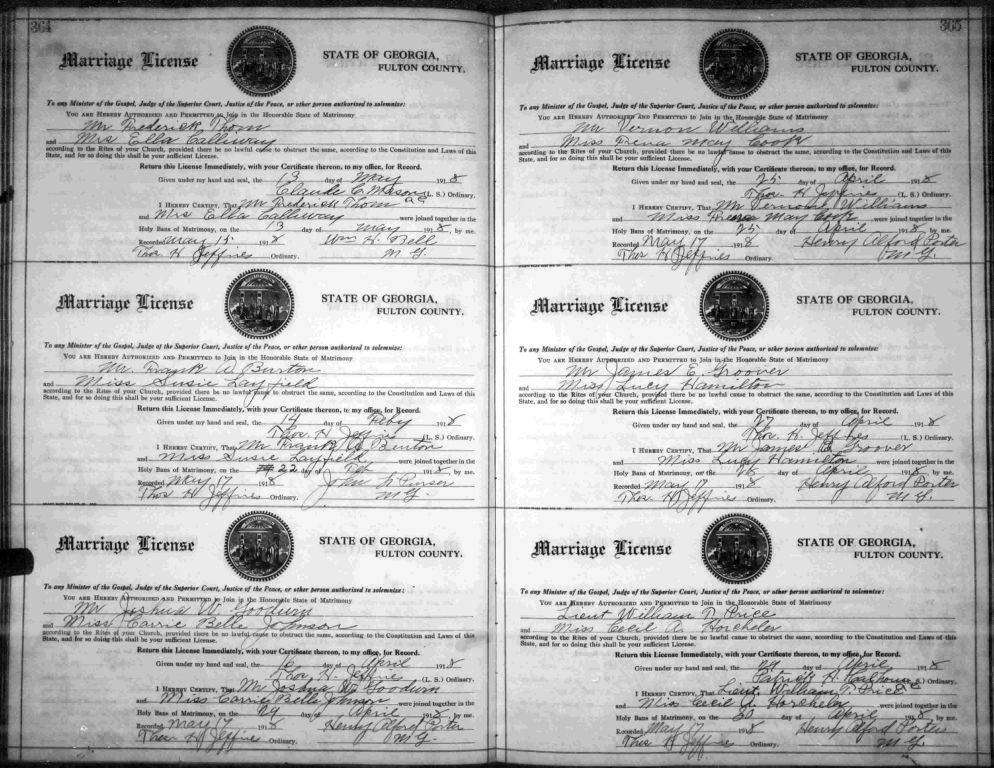 364
Marriage License
STATE OF GEORGIA,
FULTON COUNTY.
To any Minister of the Gospel, Judge of the Superior Court, Justice of the Peace, or other person authorized to solemnize:
YOU ARE HEREBY AUTHORIZED AND PERMITTED to Join in the Honorable State of Matrimony
Mr Frederick Thom
and Mrs Ella Calliway
according to the Rites of your Church, provided there be no lawful cause to obstruct the same, according to the Constitution and Laws of this
State, and for so doing this shall be your sufficient License.
Return this License Immediately, with your Certificate thereon, to my office, for Record.
Given under my hand and seal, the 13 day of May 1918
Claude C. Mason (L. S.) Ordinary.
I HEREBY CERTIFY, That Mr Frederick Thom
and Mrs Ella Calliway were joined together in the
Holy Bans of Matrimony, on the 13 day of May 1918, by me.
Recorded May 15 1918 Wm H. Bell
Thos H Jeffries Ordinary. M. G.
Marriage License
STATE OF GEORGIA,
FULTON COUNTY.
To any Minister of the Gospel, Judge of the Superior Court, Justice of the Peace, or other person authorized to solemnize:
YOU ARE HEREBY AUTHORIZED AND PERMITTED to Join in the Honorable State of Matrimony
Mr. Frank A. Burton
and Miss Susie Layfield
according to the Rites of your Church, provided there be no lawful cause to obstruct the same, according to the Constitution and Laws of this
State, and for so doing this shall be your sufficient License.
Return this License Immediately, with your Certificate thereon, to my office, for Record.
Given under my hand and seal, the 14 day of Feby 1918
Thos. H. Jeffries (L. S.) Ordinary.
I HEREBY CERTIFY, That Mr Frank A. Burton
and Miss Susie Layfield were joined together in the
Holy Bans of Matrimony, on the 22 day of Feb 1918, by me.
Recorded May 17 1918 John Purser
Thos H Jeffries Ordinary. M. G.
Marriage License
STATE OF GEORGIA,
FULTON COUNTY.
To any Minister of the Gospel, Judge of the Superior Court, Justice of the Peace, or other person authorized to solemnize:
YOU ARE HEREBY AUTHORIZED AND PERMITTED to Join in the Honorable State of Matrimony
Mr Joshua W. Goodwin
and Miss Carrie Belle Johnson
according to the Rites of your Church, provided there be no lawful cause to obstruct the same, according to the Constitution and Laws of this
State, and for so doing this shall be your sufficient License.
Return this License Immediately, with your Certificate thereon, to my office, for Record.
Given under my hand and seal, the 16 day of April 1918
Thos. H. Jeffries (L. S.) Ordinary.
I HEREBY CERTIFY, That Mr Joshua W. Goodwin
and Miss Carrie Belle Johnson were joined together in the
Holy Bans of Matrimony, on the day of April 1918, by me.
Recorded May 17 1918 Henry Alford Porter
Thos H Jeffries Ordinary. M. G.
365
Marriage License
STATE OF GEORGIA,
FULTON COUNTY.
To any Minister of the Gospel, Judge of the Superior Court, Justice of the Peace, or other person authorized to solemnize:
YOU ARE HEREBY AUTHORIZED AND PERMITTED to Join in the Honorable State of Matrimony
Mr Vernon Williams
and Miss May Cook
according to the Rites of your Church, provided there be no lawful cause to obstruct the same, according to the Constitution and Laws of this
State, and for so doing this shall be your sufficient License.
Return this License Immediately, with your Certificate thereon, to my office, for Record.
Given under my hand and seal, the 25 day of April 1918
Thos. H Jeffries (L. S.) Ordinary.
I HEREBY CERTIFY, That Mr Vernon Williams
and Miss May Cook were joined together in the
Holy Bans of Matrimony, on the 25 day of April 1918, by me.
Recorded May 17 1918 Henry Alford Porter
Thos H Jeffries Ordinary. M. G.
Marriage License
STATE OF GEORGIA,
FULTON COUNTY.
To any Minister of the Gospel, Judge of the Superior Court, Justice of the Peace, or other person authorized to solemnize:
YOU ARE HEREBY AUTHORIZED AND PERMITTED to Join in the Honorable State of Matrimony
Mr James E. Groover
and Miss Lucy Hamilton
according to the Rites of your Church, provided there be no lawful cause to obstruct the same, according to the Constitution and Laws of this
State, and for so doing this shall be your sufficient License.
Return this License Immediately, with your Certificate thereon, to my office, for Record.
Given under my hand and seal, the 27 day of April 1918
Thos. H. Jeffries (L. S.) Ordinary.
I HEREBY CERTIFY, That Mr James E. Groover
and Miss Lucy Hamilton were joined together in the
Holy Bans of Matrimony, on the day of April 1918, by me.
Recorded May 17 1918 Henry Alford Porter
Thos. H Jeffries Ordinary. M. G.
Marriage License
STATE OF GEORGIA,
FULTON COUNTY.
To any Minister of the Gospel, Judge of the Superior Court, Justice of the Peace, or other person authorized to solemnize:
YOU ARE HEREBY AUTHORIZED AND PERMITTED to Join in the Honorable State of Matrimony
Lieut William T. Price
and Miss Cecil A.
according to the Rites of your Church, provided there be no lawful cause to obstruct the same, according to the Constitution and Laws of this
State, and for so doing this shall be your sufficient License.
Return this License Immediately, with your Certificate thereon, to my office, for Record.
Given under my hand and seal, the day of April 1918
Patrick H. Calhoun (L. S.) Ordinary.
I HEREBY CERTIFY, That Lieut. William T. Price
and Miss Cecil A were joined together in the
Holy Bans of Matrimony, on the 30 day of April 1918, by me.
Recorded May 17 1918 Henry Alford Porter
Thos H Jeffries Ordinary. M. G.